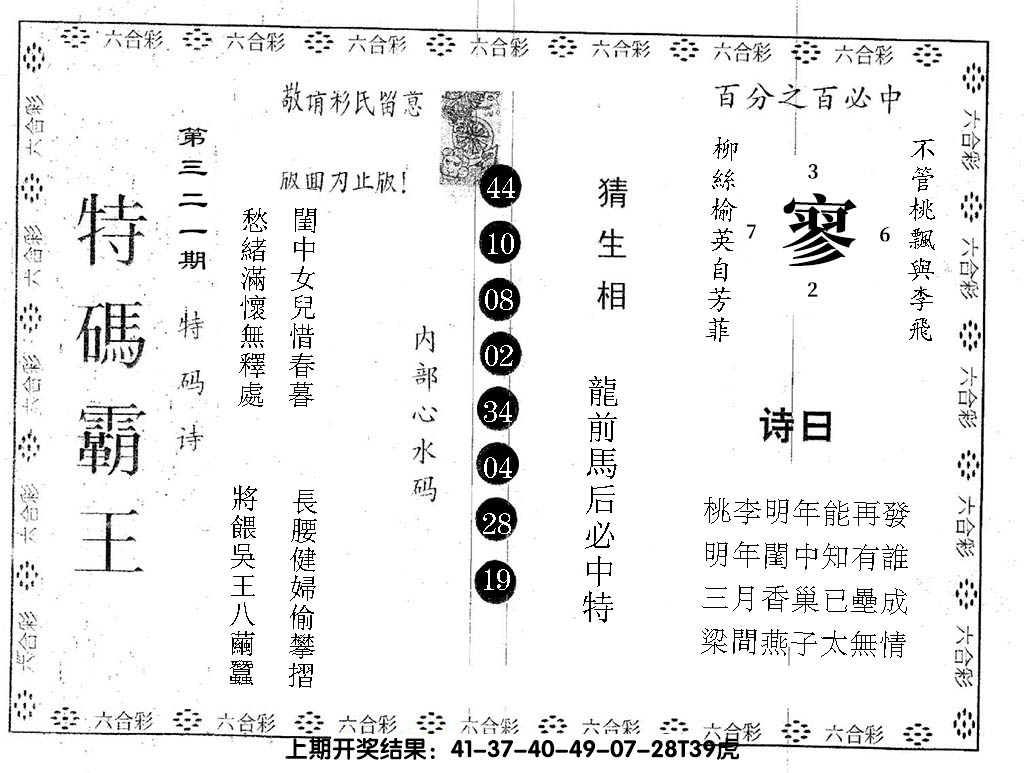 六合彩 六合彩 六合彩 六合彩 六合彩 六合彩 六合彩
六合彩 六合彩 六合彩 六合彩 六合彩
六合彩 六合彩 六合彩 六合彩 六合彩
百分之百必中
不管桃飄與李飛
柳絲榆英自芳菲
3
7
寥
6
2
诗曰
桃李明年能再發
明年閨中知有誰
三月香巢已壘成
梁間燕子太無情
猜生相
龍前馬后必中特
44
10
08
02
34
04
28
19
内部心水码
版面
止版!
閨中女兒惜春暮
愁緒滿懷無釋處
長腰健婦偷攀摺
將餵吳王八繭蠶
第三二一期
特码诗
特碼霸王
六合彩 六合彩 六合彩 六合彩 六合彩 六合彩 六合彩
上期开奖结果：41-37-40-49-07-28T39虎